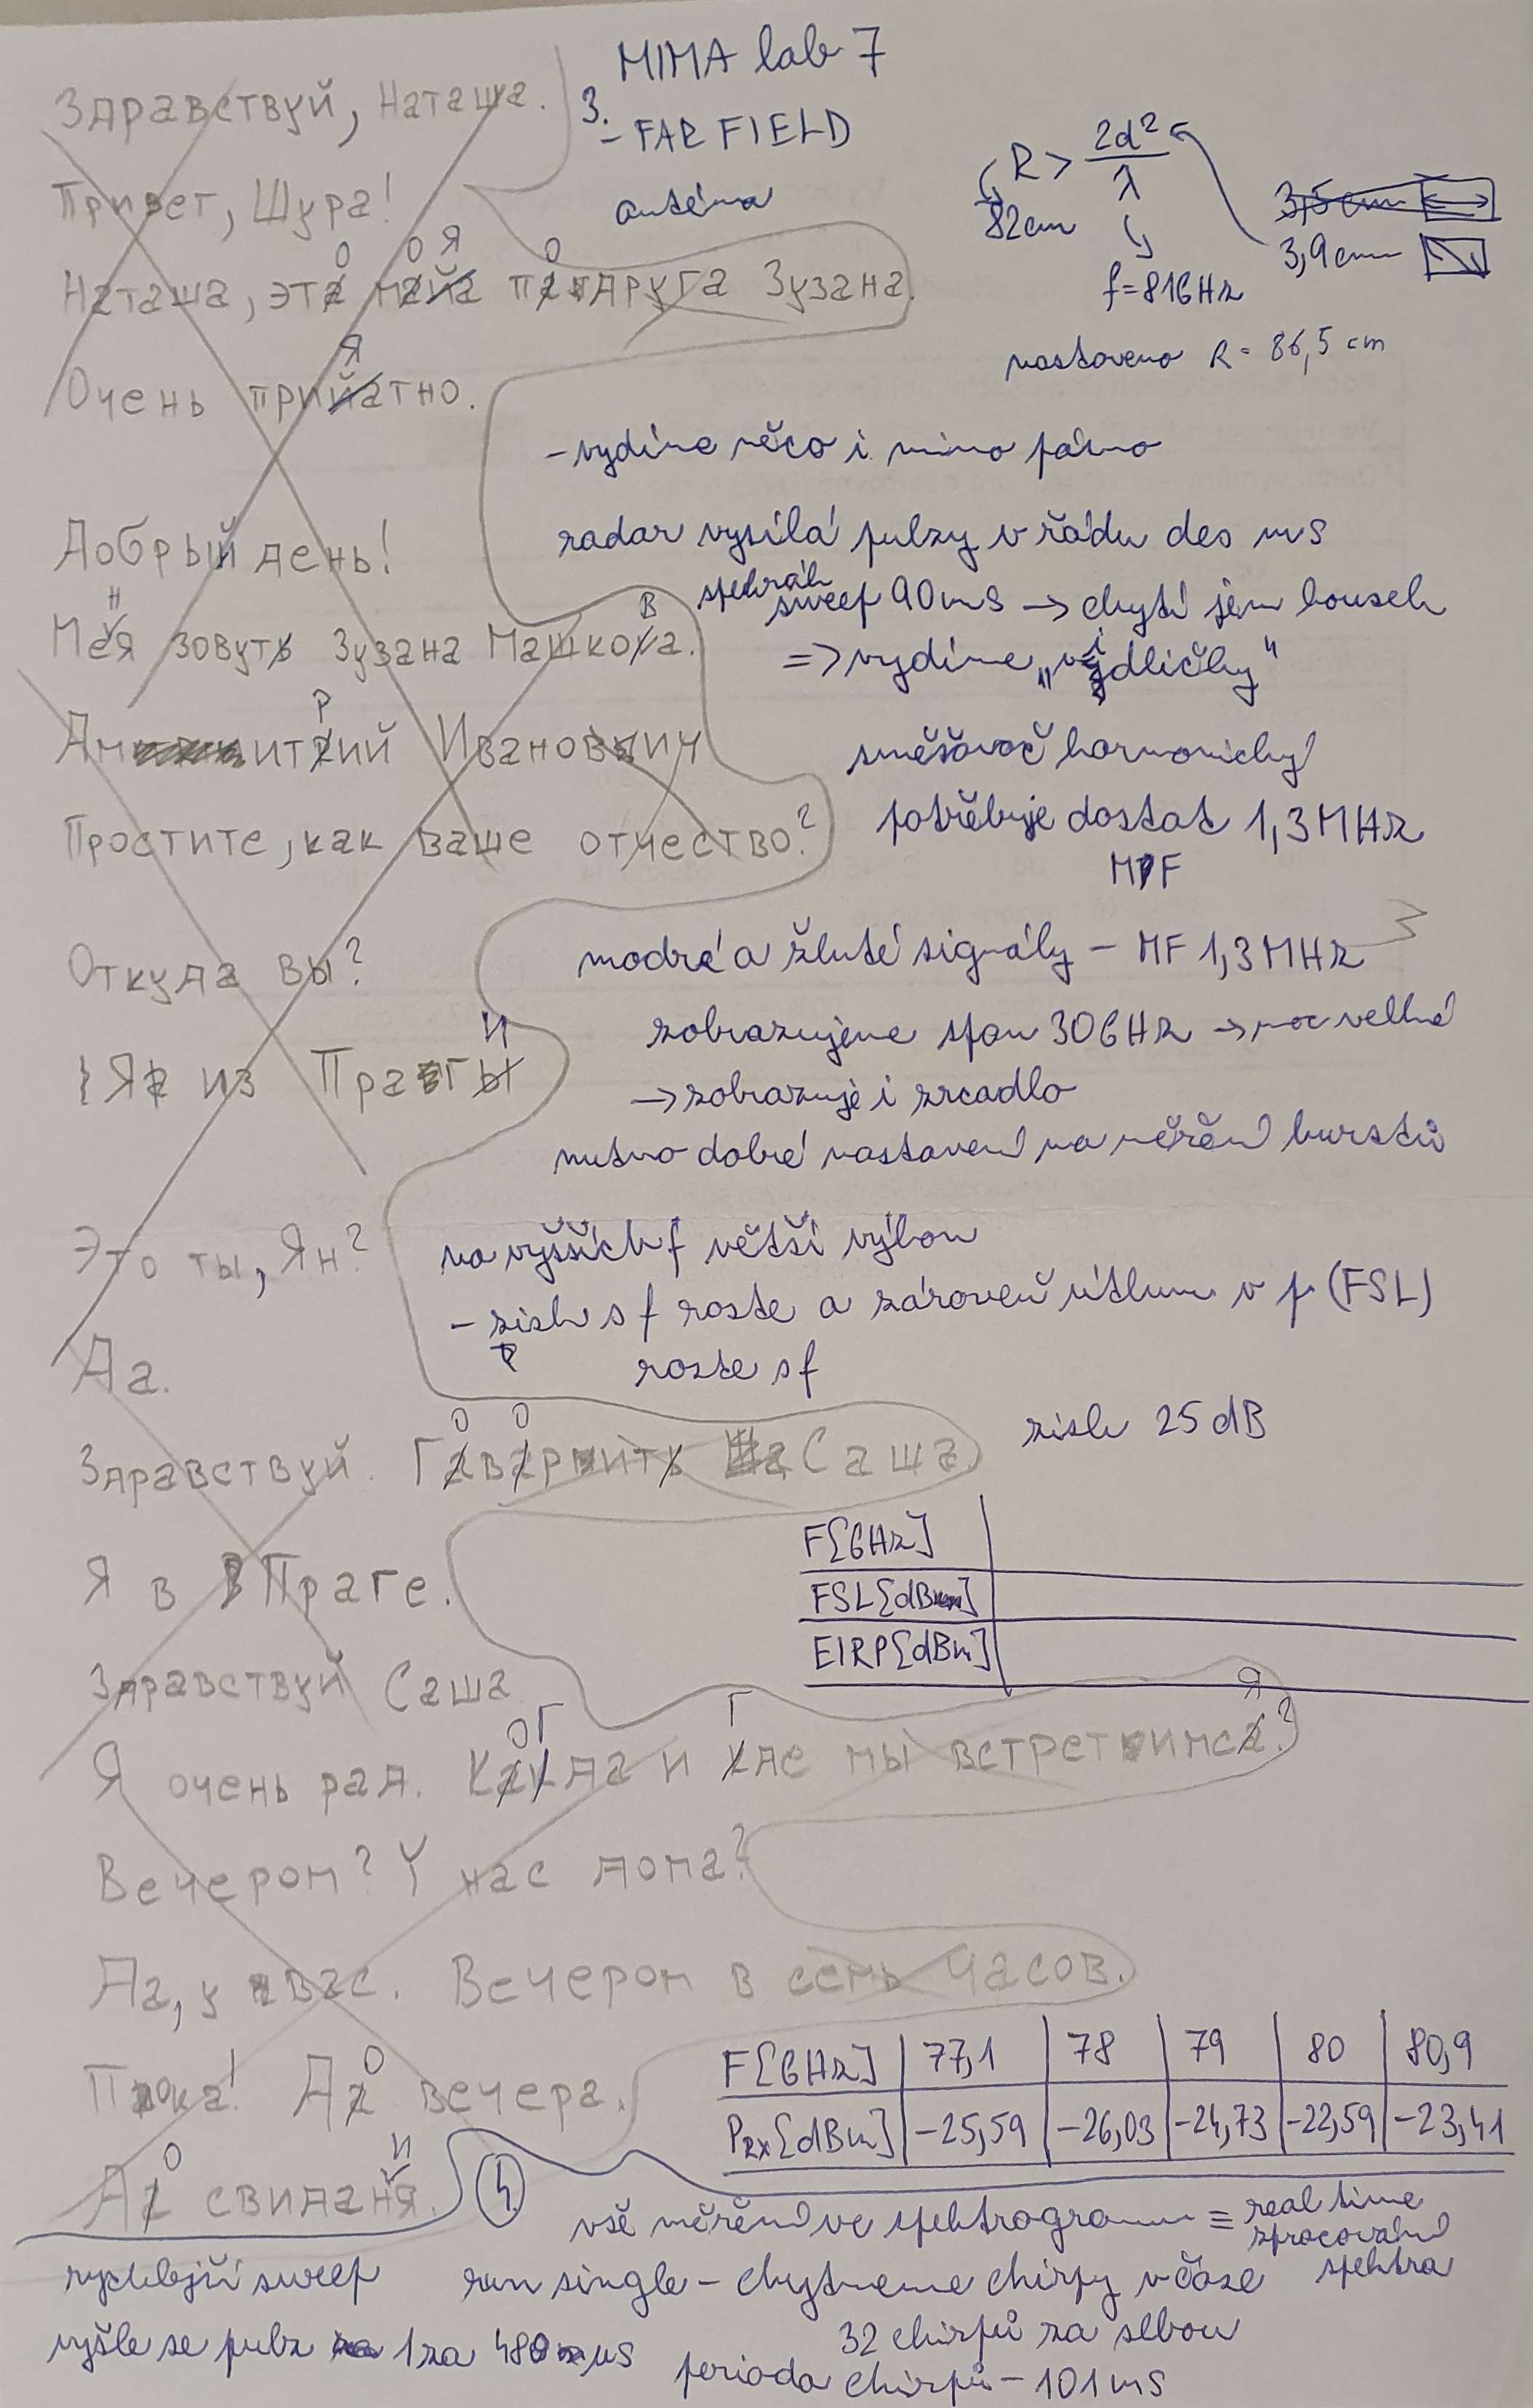 MIMA lab 7
3.
- FAR FIELD
anténa
R > 2d² / λ
82cm
f=81GHz
3,5cm
3,9cm
nastaveno R = 86,5 cm
- vydíme něco i mimo pásmo
radar vysílá pulzy v řádu des ms
spektrál
sweep 90ms → chytí jen kousek
=> vydíme „vidličky"
směšovač harmonický
potřebuje dostat 1,3MHz
MF
modré a žluté signály - MF 1,3MHz
zobrazujeme span 30GHz → moc velké
→ zobrazuje i zrcadlo
nutno dobré nastavení na měření burstů
na vyšších f větší výkon
- zisk s f roste a zároveň útlum v p (FSL)
P
roste s f
zisk 25dB
F[GHz]
FSL[dB]
EIRP[dBm]
F[GHz] 77,1 78 79 80 80,9
PRX[dBm] -25,59 -26,03 -24,73 -22,59 -23,41
4.
vše měření ve spektrogramu ≡ real time
zpracování
spektra
rychlejší sweep
run single - chytneme chirpy v čase
32 chirpů za sebou
vyšle se pulz 1 za 480 µs
perioda chirpů - 101ms
Здравствуй, Наташа.
Привет, Шура!
Наташа, это моя подруга Зузана.
Очень приятно.
Добрый день!
Меня зовут Зузана Машкова.
Дмитрий Иванович
Простите, как ваше отчество?
Откуда вы?
Я из Праги
Это ты, Ян?
Да.
Здравствуй. Говорит Саша.
Я в Праге.
Здравствуй Саша
Я очень рад. Когда и где мы встретимся?
Вечером? У нас дома?
Да, у вас. Вечером в семь часов.
Пока! До вечера.
До свидания.